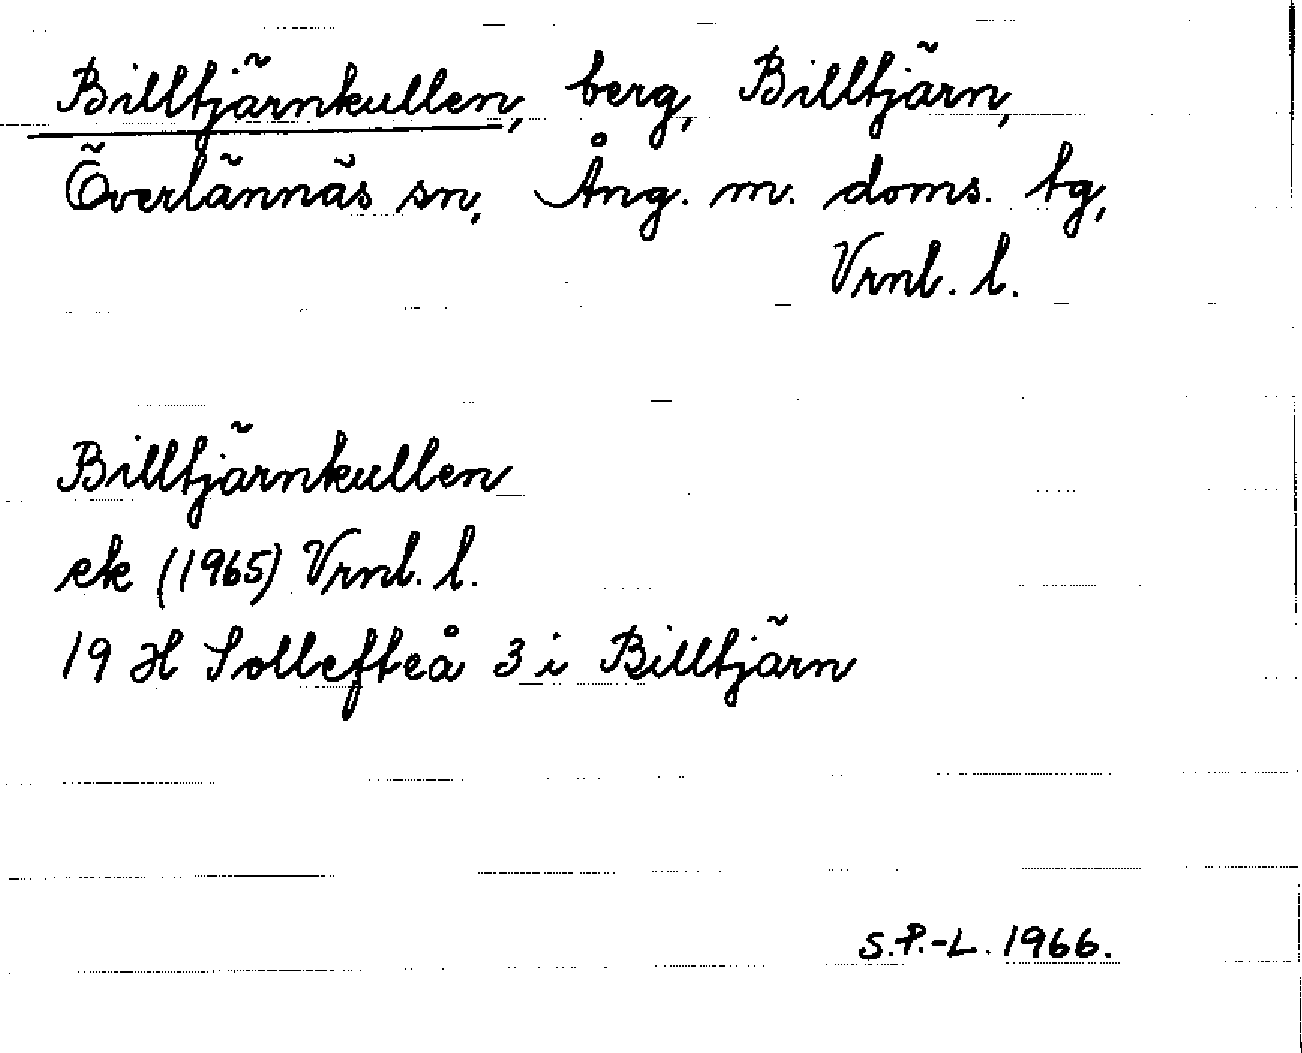 Billtjärnkullen, berg, Billtjärn,
Överlännäs sn, Ång. m. doms. tg,
Vrnl. l.
Billtjärnkullen
ek (1965) Vrnl. l.
19 H Sollefteå 3 i Billtjärn
S.P.-L. 1966.